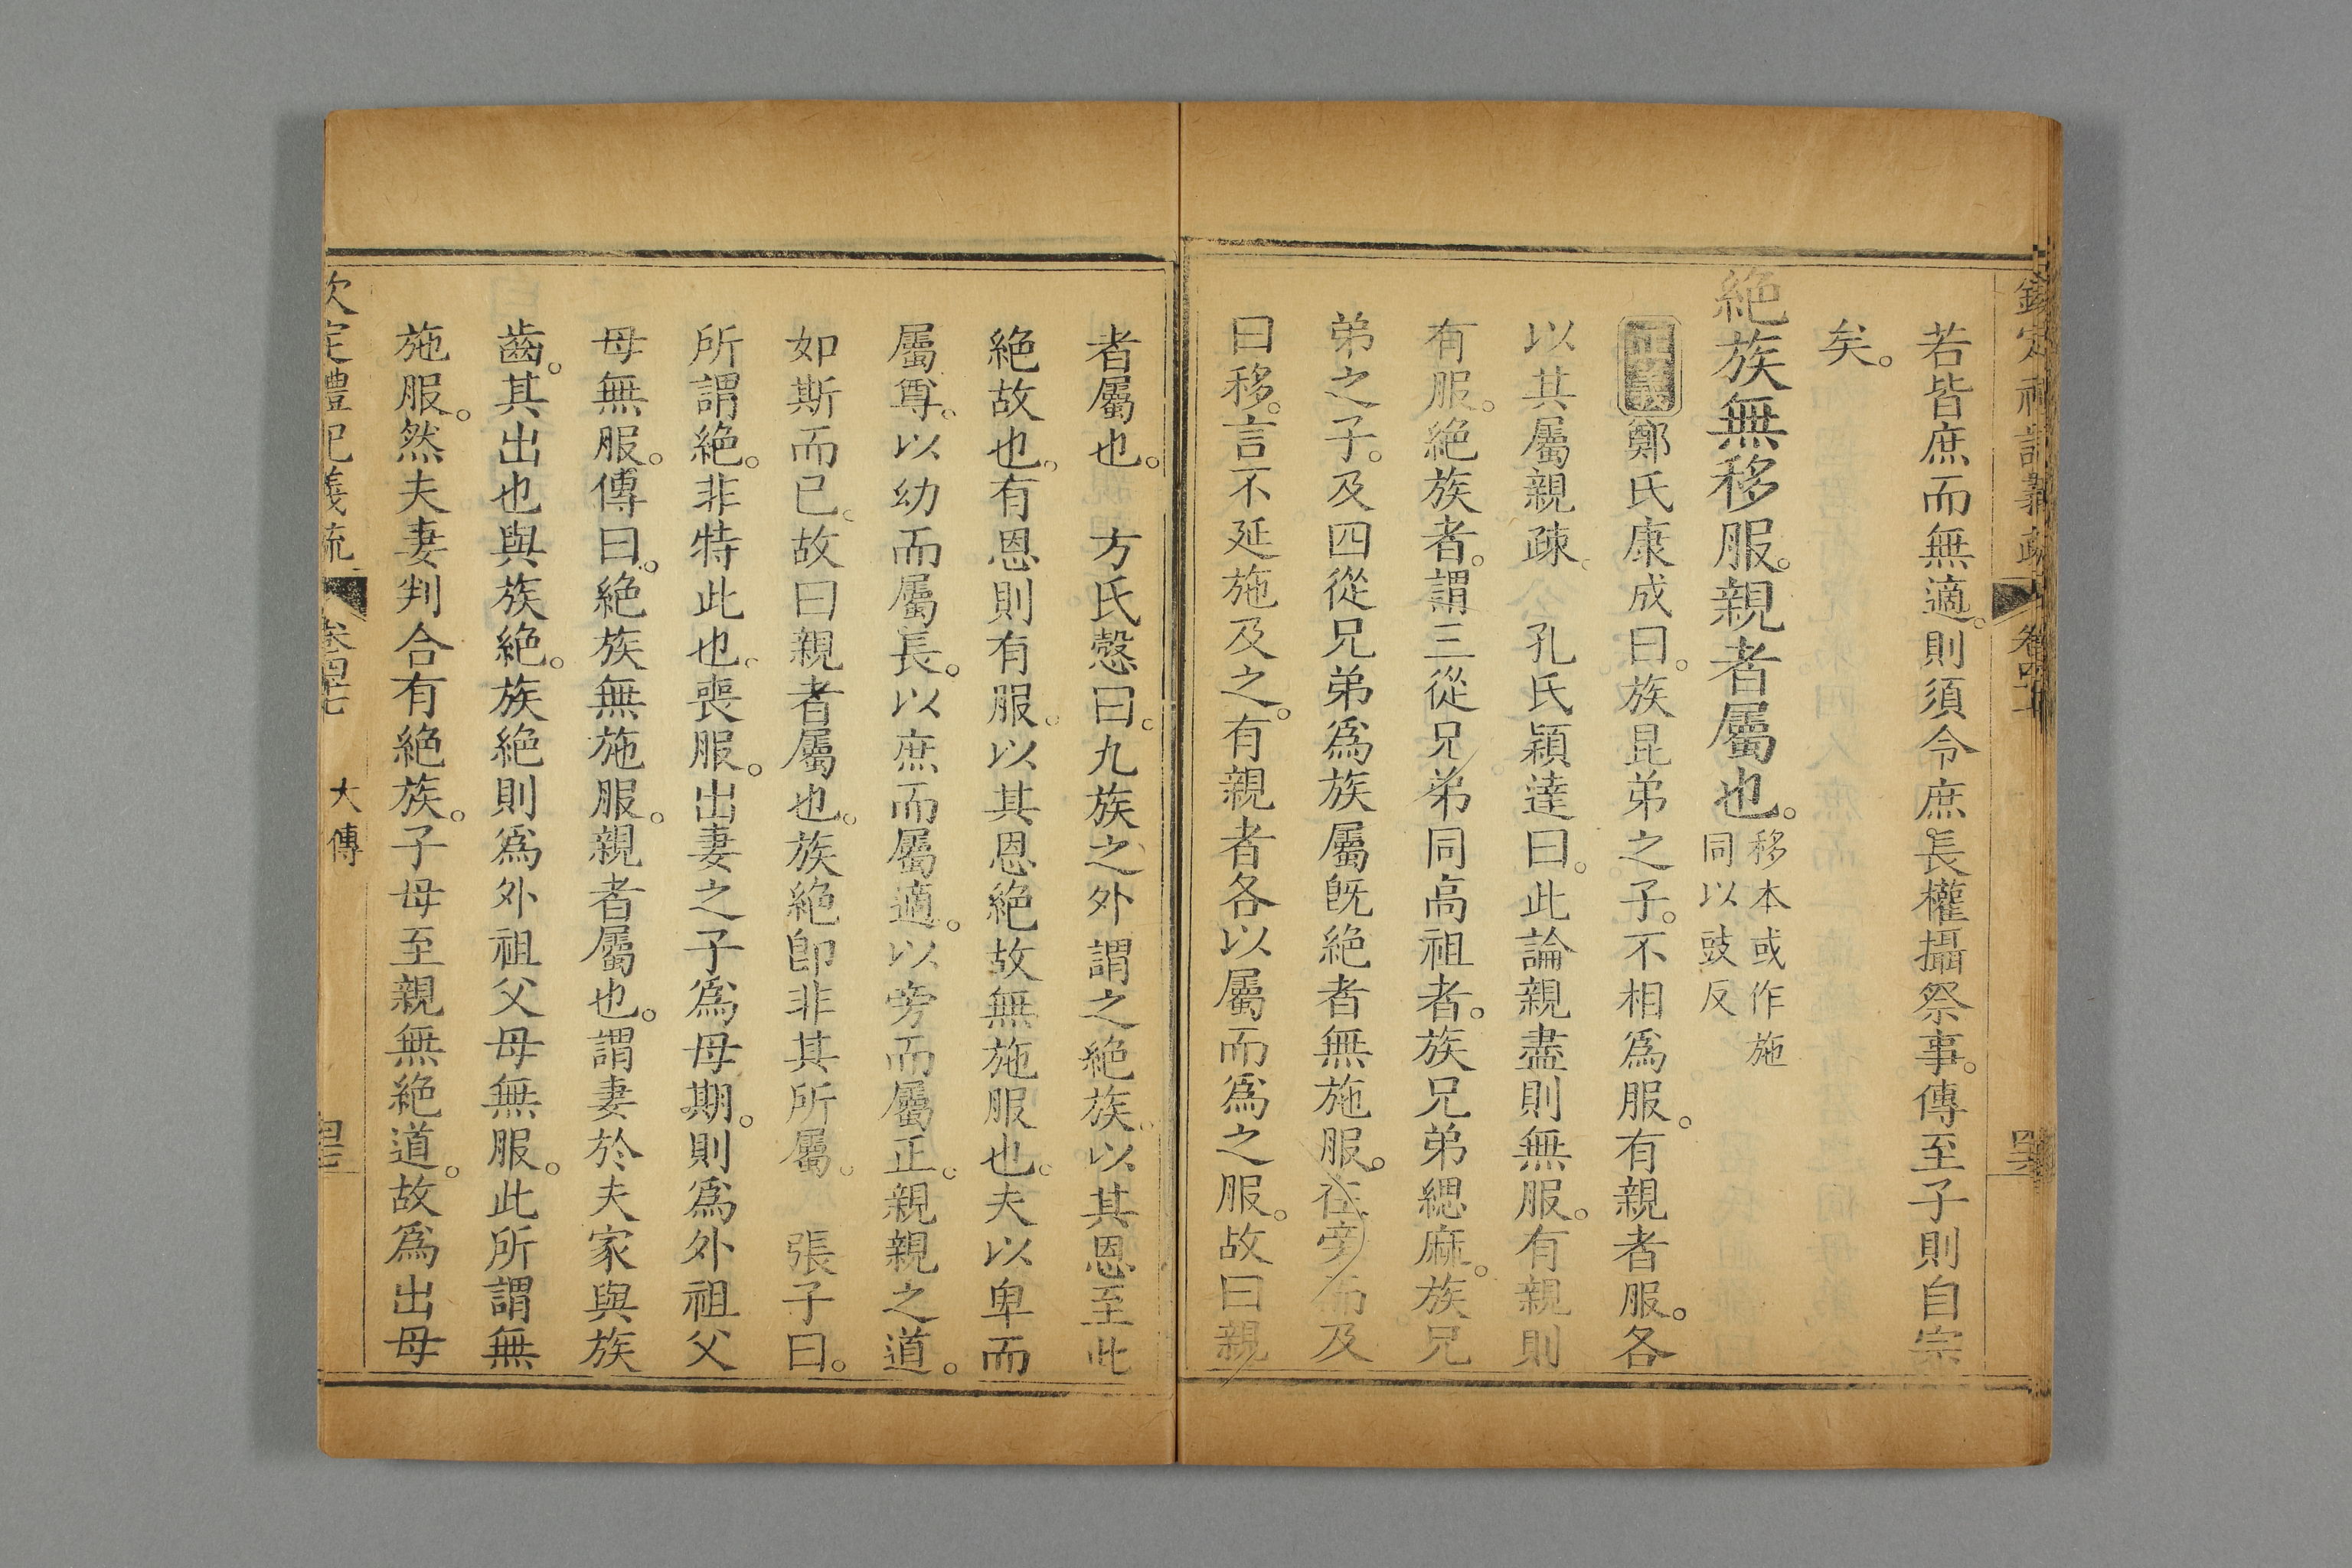 欽定禮記義疏 卷四十七
若皆庶而無適。則須令庶長權攝祭事。傳至子則自宗
矣。
絶族無移服。親者屬也。移本或作施同以豉反
正義鄭氏康成曰。族昆弟之子。不相爲服。有親者服。各
以其屬親疎。 孔氏穎達曰。此論親盡則無服。有親則
有服。絶族者。謂三從兄弟同高祖者。族兄弟緦麻。族兄
弟之子。及四從兄弟爲族屬旣絶者無施服。在旁而及
曰移。言不延施及之。有親者各以屬而爲之服。故曰親
者屬也。 方氏慤曰。九族之外謂之絶族。以其恩至此
絶故也。有恩則有服。以其恩絶故無施服也。夫以卑而
屬尊。以幼而屬長。以庶而屬適。以旁而屬正。親親之道。
如斯而已。故曰親者屬也。族絶卽非其所屬。 張子曰。
所謂絶。非特此也。喪服。出妻之子爲母期。則爲外祖父
母無服。傳曰。絶族無施服。親者屬也。謂妻於夫家與族
齒。其出也與族絶。族絶則爲外祖父母無服。此所謂無
施服。然夫妻判合有絶族。子母至親無絶道。故爲出母
欽定禮記義疏 卷四十七 大傳 四七